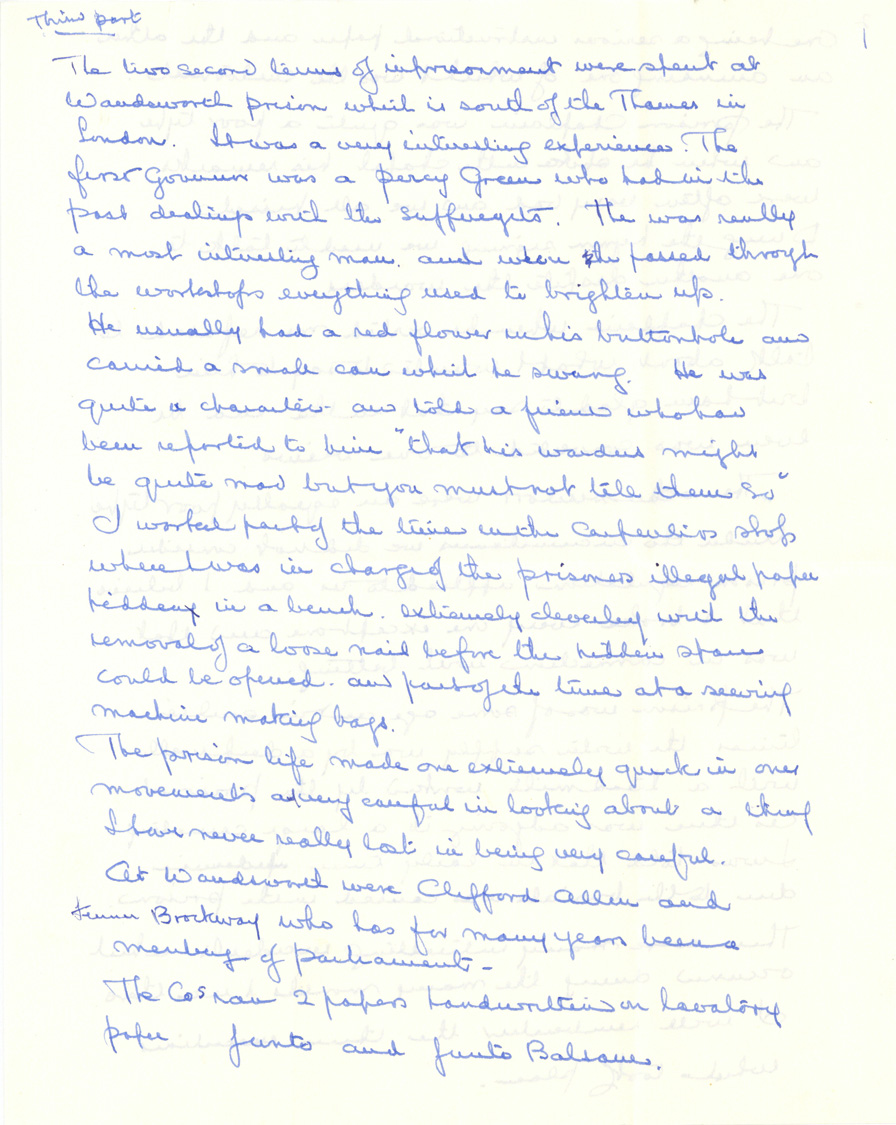 Third part
1
The two second terms of imprisonment were spent at
Wandsworth prison which is south of the Thames in
London. It was a very interesting experience. The
first Governor was a percy Green who had in the
past dealings with the suffragets. The was really
a most interesting man. and when he passed through
the workshops everything used to brighten up.
He usually had a red flower in his buttonhole and
carried a small cane which he swang. He was
quite a character and told a friend who had
been reported to him "that his warders might
be quite mad but you must not tell them so"
I worked part of the time in the Carpenters shop
where I was in charge of the prisoners illegal paper
hidden in a bench. extremely cleverly with the
removal of a loose nail before the hidden space
could be opened. and part of the time at a sewing
machine making bags.
The prison life made one extremely quick in ones
movements a very careful in looking about a thing
I have never really lost in being very careful.
At Wandsworth were Clifford Allen and
Fenner Brockway who has for many years been a
member of parliament -
The Cos ran 2 papers handwritten on lavatory
paper Junto and